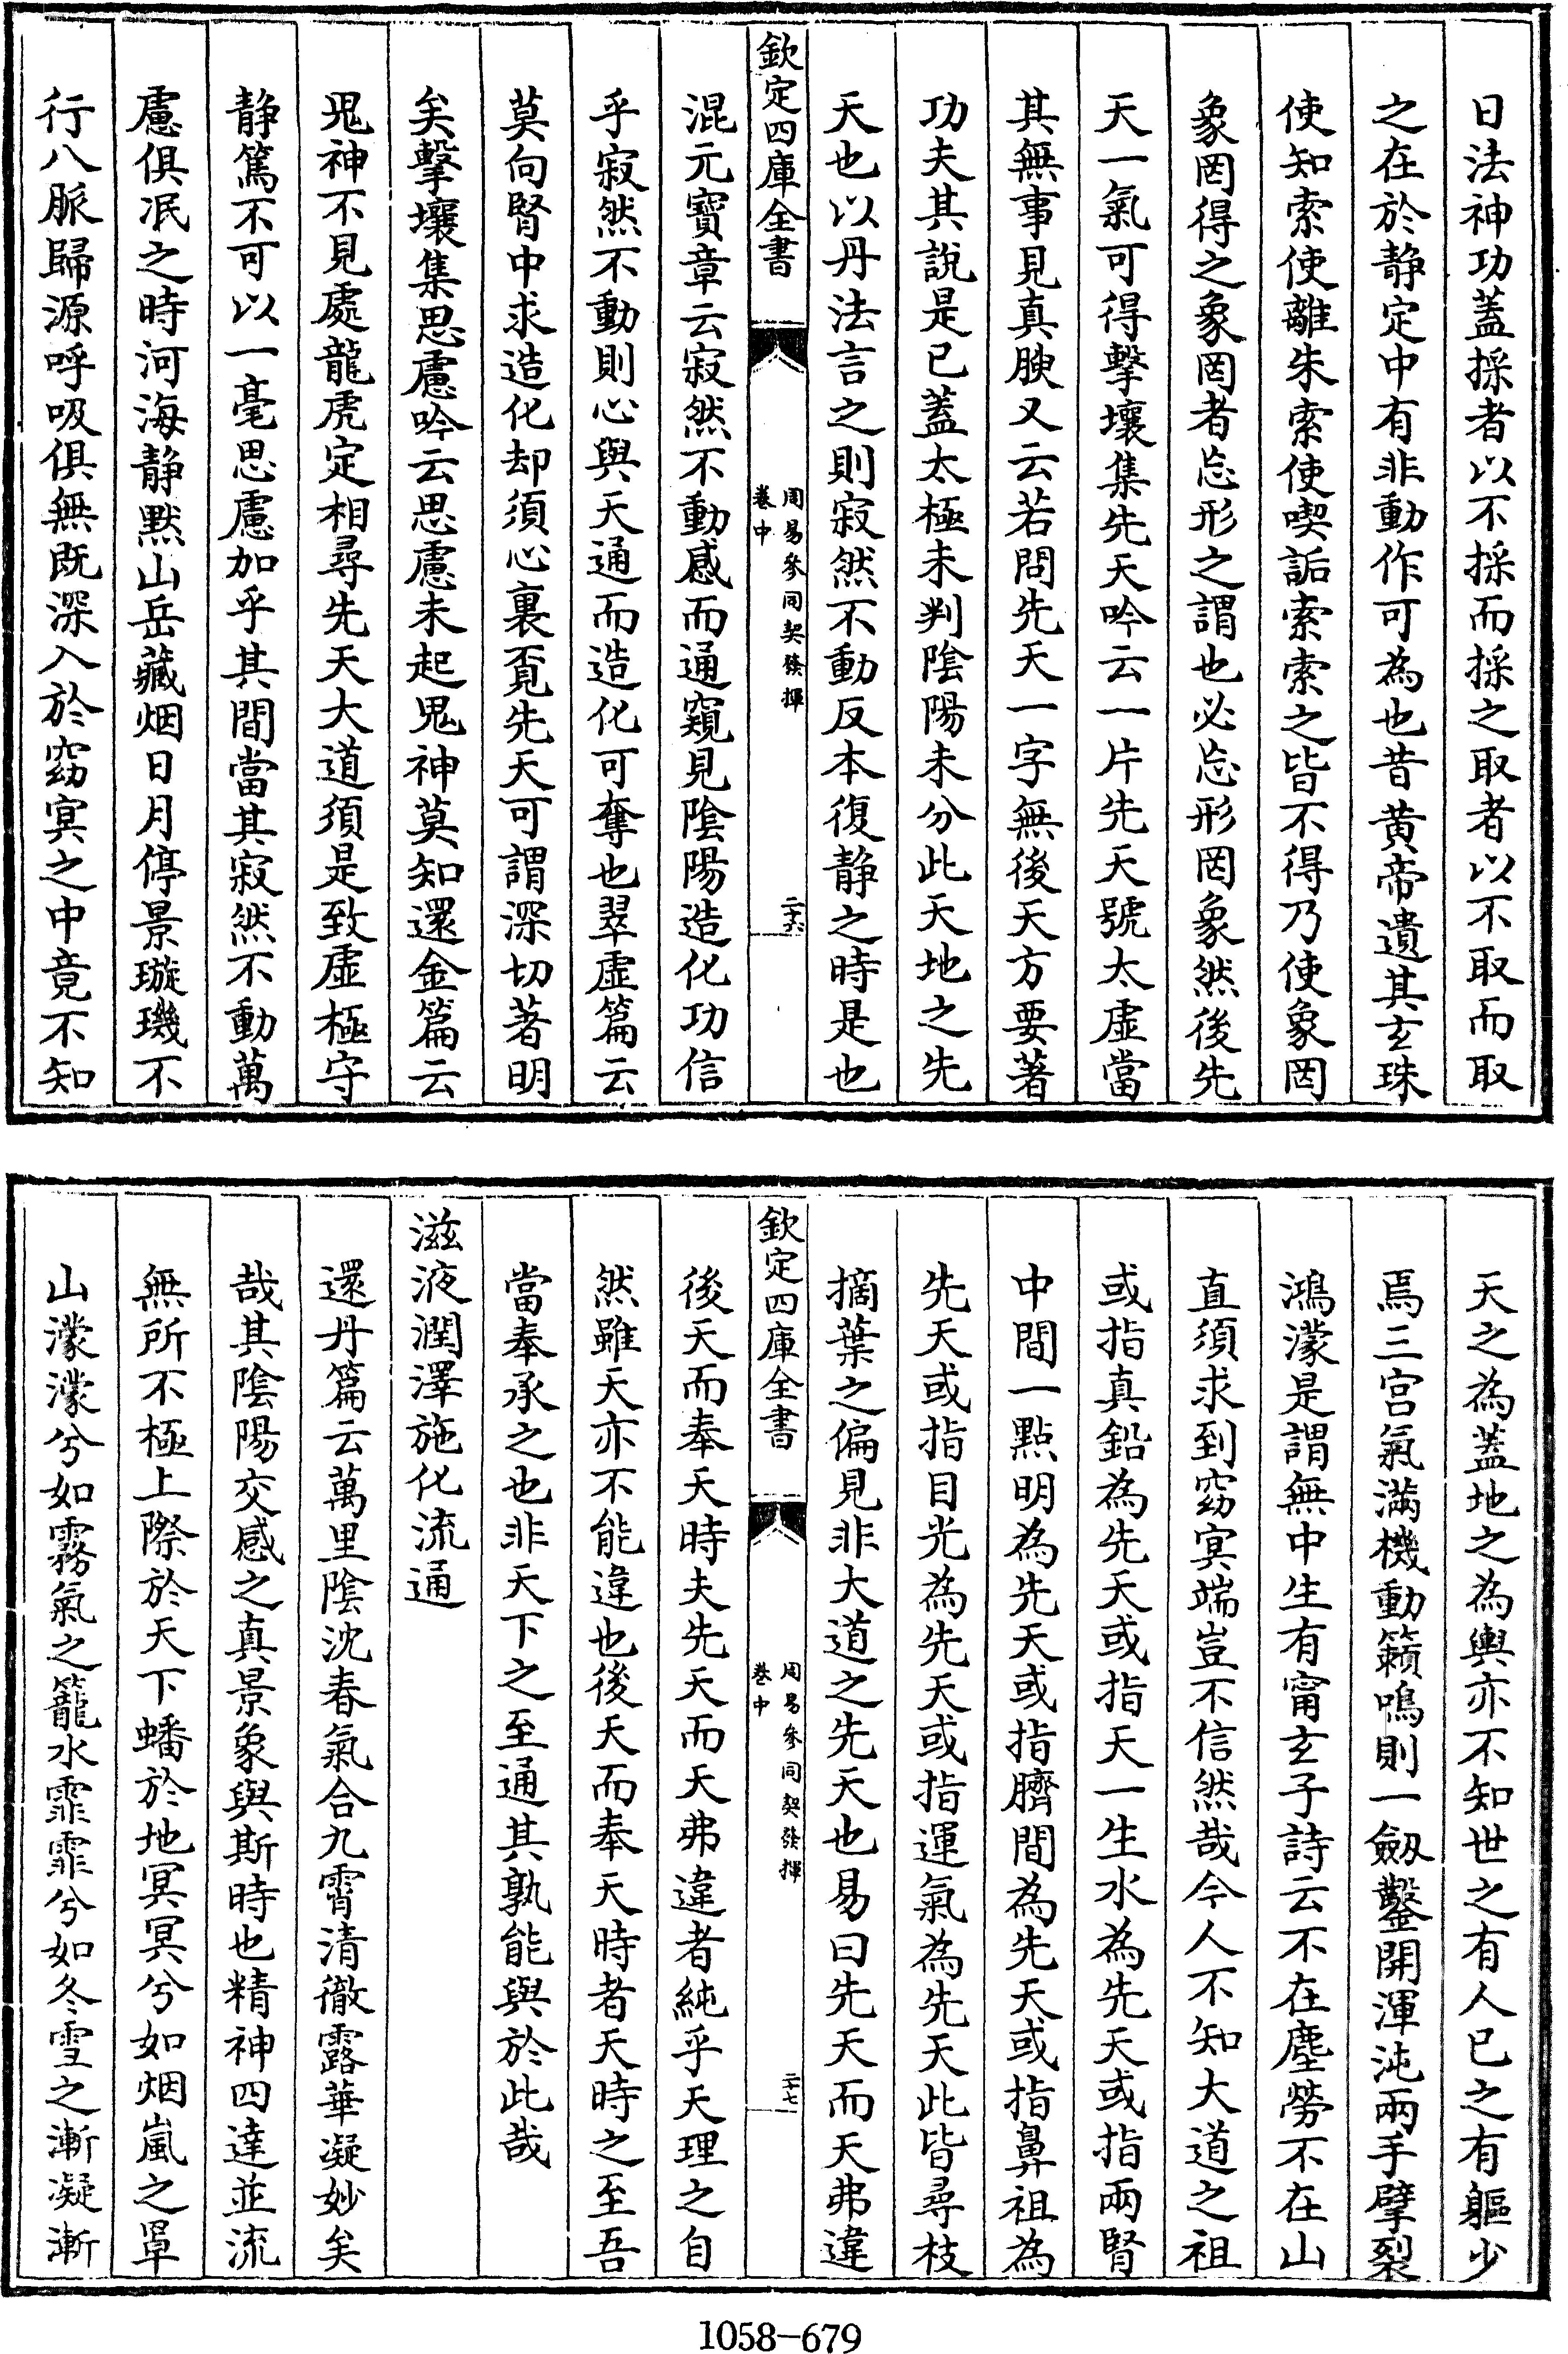 日法神功蓋採者以不採而採之取者以不取而取
之在於静定中有非動作可為也昔黄帝遺其玄珠
使知索使離朱索使喫詬索索之皆不得乃使象罔
象罔得之象罔者忘形之謂也必忘形罔象然後先
天一氣可得擊壤集先天吟云一片先天號太虚當
其無事見真腴又云若問先天一字無後天方要著
功夫其說是已蓋太極未判隂陽未分此天地之先
天也以丹法言之則寂然不動反本復静之時是也
欽定四庫全書
周易參同契發揮
卷中
二十六
混元寶章云寂然不動感而通窺見隂陽造化功信
乎寂然不動則心與天通而造化可奪也翠虚篇云
莫向腎中求造化却須心裏覔先天可謂深切著明
矣擊壤集思慮吟云思慮未起鬼神莫知還金篇云
鬼神不見處龍虎定相尋先天大道須是致虚極守
静篤不可以一毫思慮加乎其間當其寂然不動萬
慮俱冺之時河海静默山岳藏烟日月停景璇璣不
行八脈歸源呼吸俱無既深入於窈冥之中竟不知
天之為蓋地之為輿亦不知世之有人已之有軀少
焉三宫氣滿機動籟鳴則一劔鑿開渾沌兩手擘裂
鴻濛是謂無中生有甯玄子詩云不在塵勞不在山
直須求到窈冥端豈不信然哉今人不知大道之祖
或指真鉛為先天或指天一生水為先天或指兩腎
中間一點明為先天或指臍間為先天或指鼻祖為
先天或指目光為先天或指運氣為先天此皆尋枝
摘葉之偏見非大道之先天也易曰先天而天弗違
欽定四庫全書
周易參同契發揮
卷中
二十七
後天而奉天時夫先天而天弗違者純乎天理之自
然雖天亦不能違也後天而奉天時者天時之至吾
當奉承之也非天下之至通其孰能與於此哉
滋液潤澤施化流通
還丹篇云萬里隂沈春氣合九霄清徹露華凝妙矣
哉其隂陽交感之真景象與斯時也精神四達並流
無所不極上際於天下蟠於地冥冥兮如烟嵐之罩
山濛濛兮如霧氣之籠水霏霏兮如冬雪之漸凝漸
1058-679